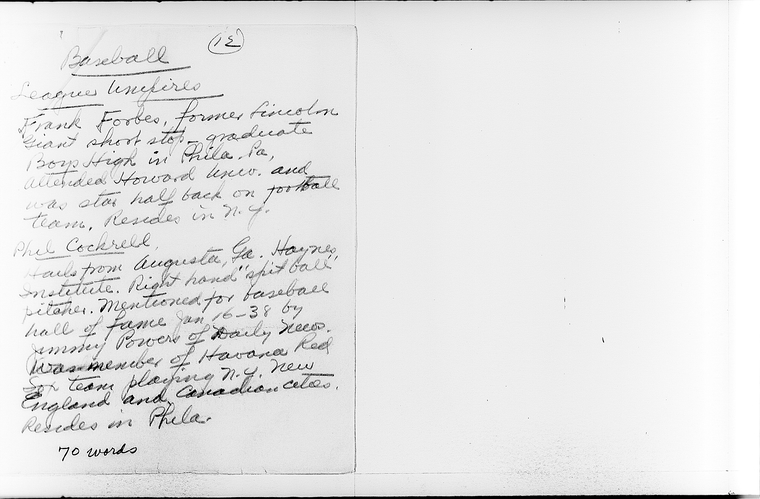 Baseball (12)
League Umpires
Frank Forbes, former Lincoln
Giant short stop - graduate
Boys High in Phila. Pa,
attended Howard Univ. and
was star half back on football
team. Resides in N.Y.
Phil Cockrell,
Hails from Augusta, Ga. Haynes
Institute. Right hand "spit ball"
pitcher. Mentioned for baseball
hall of fame Jan 16-38 by
Jimmy Powers of Daily News.
Was member of Havana Red
Sox team playing N.Y. New
England and Canadian cities.
Resides in Phila.
70 words